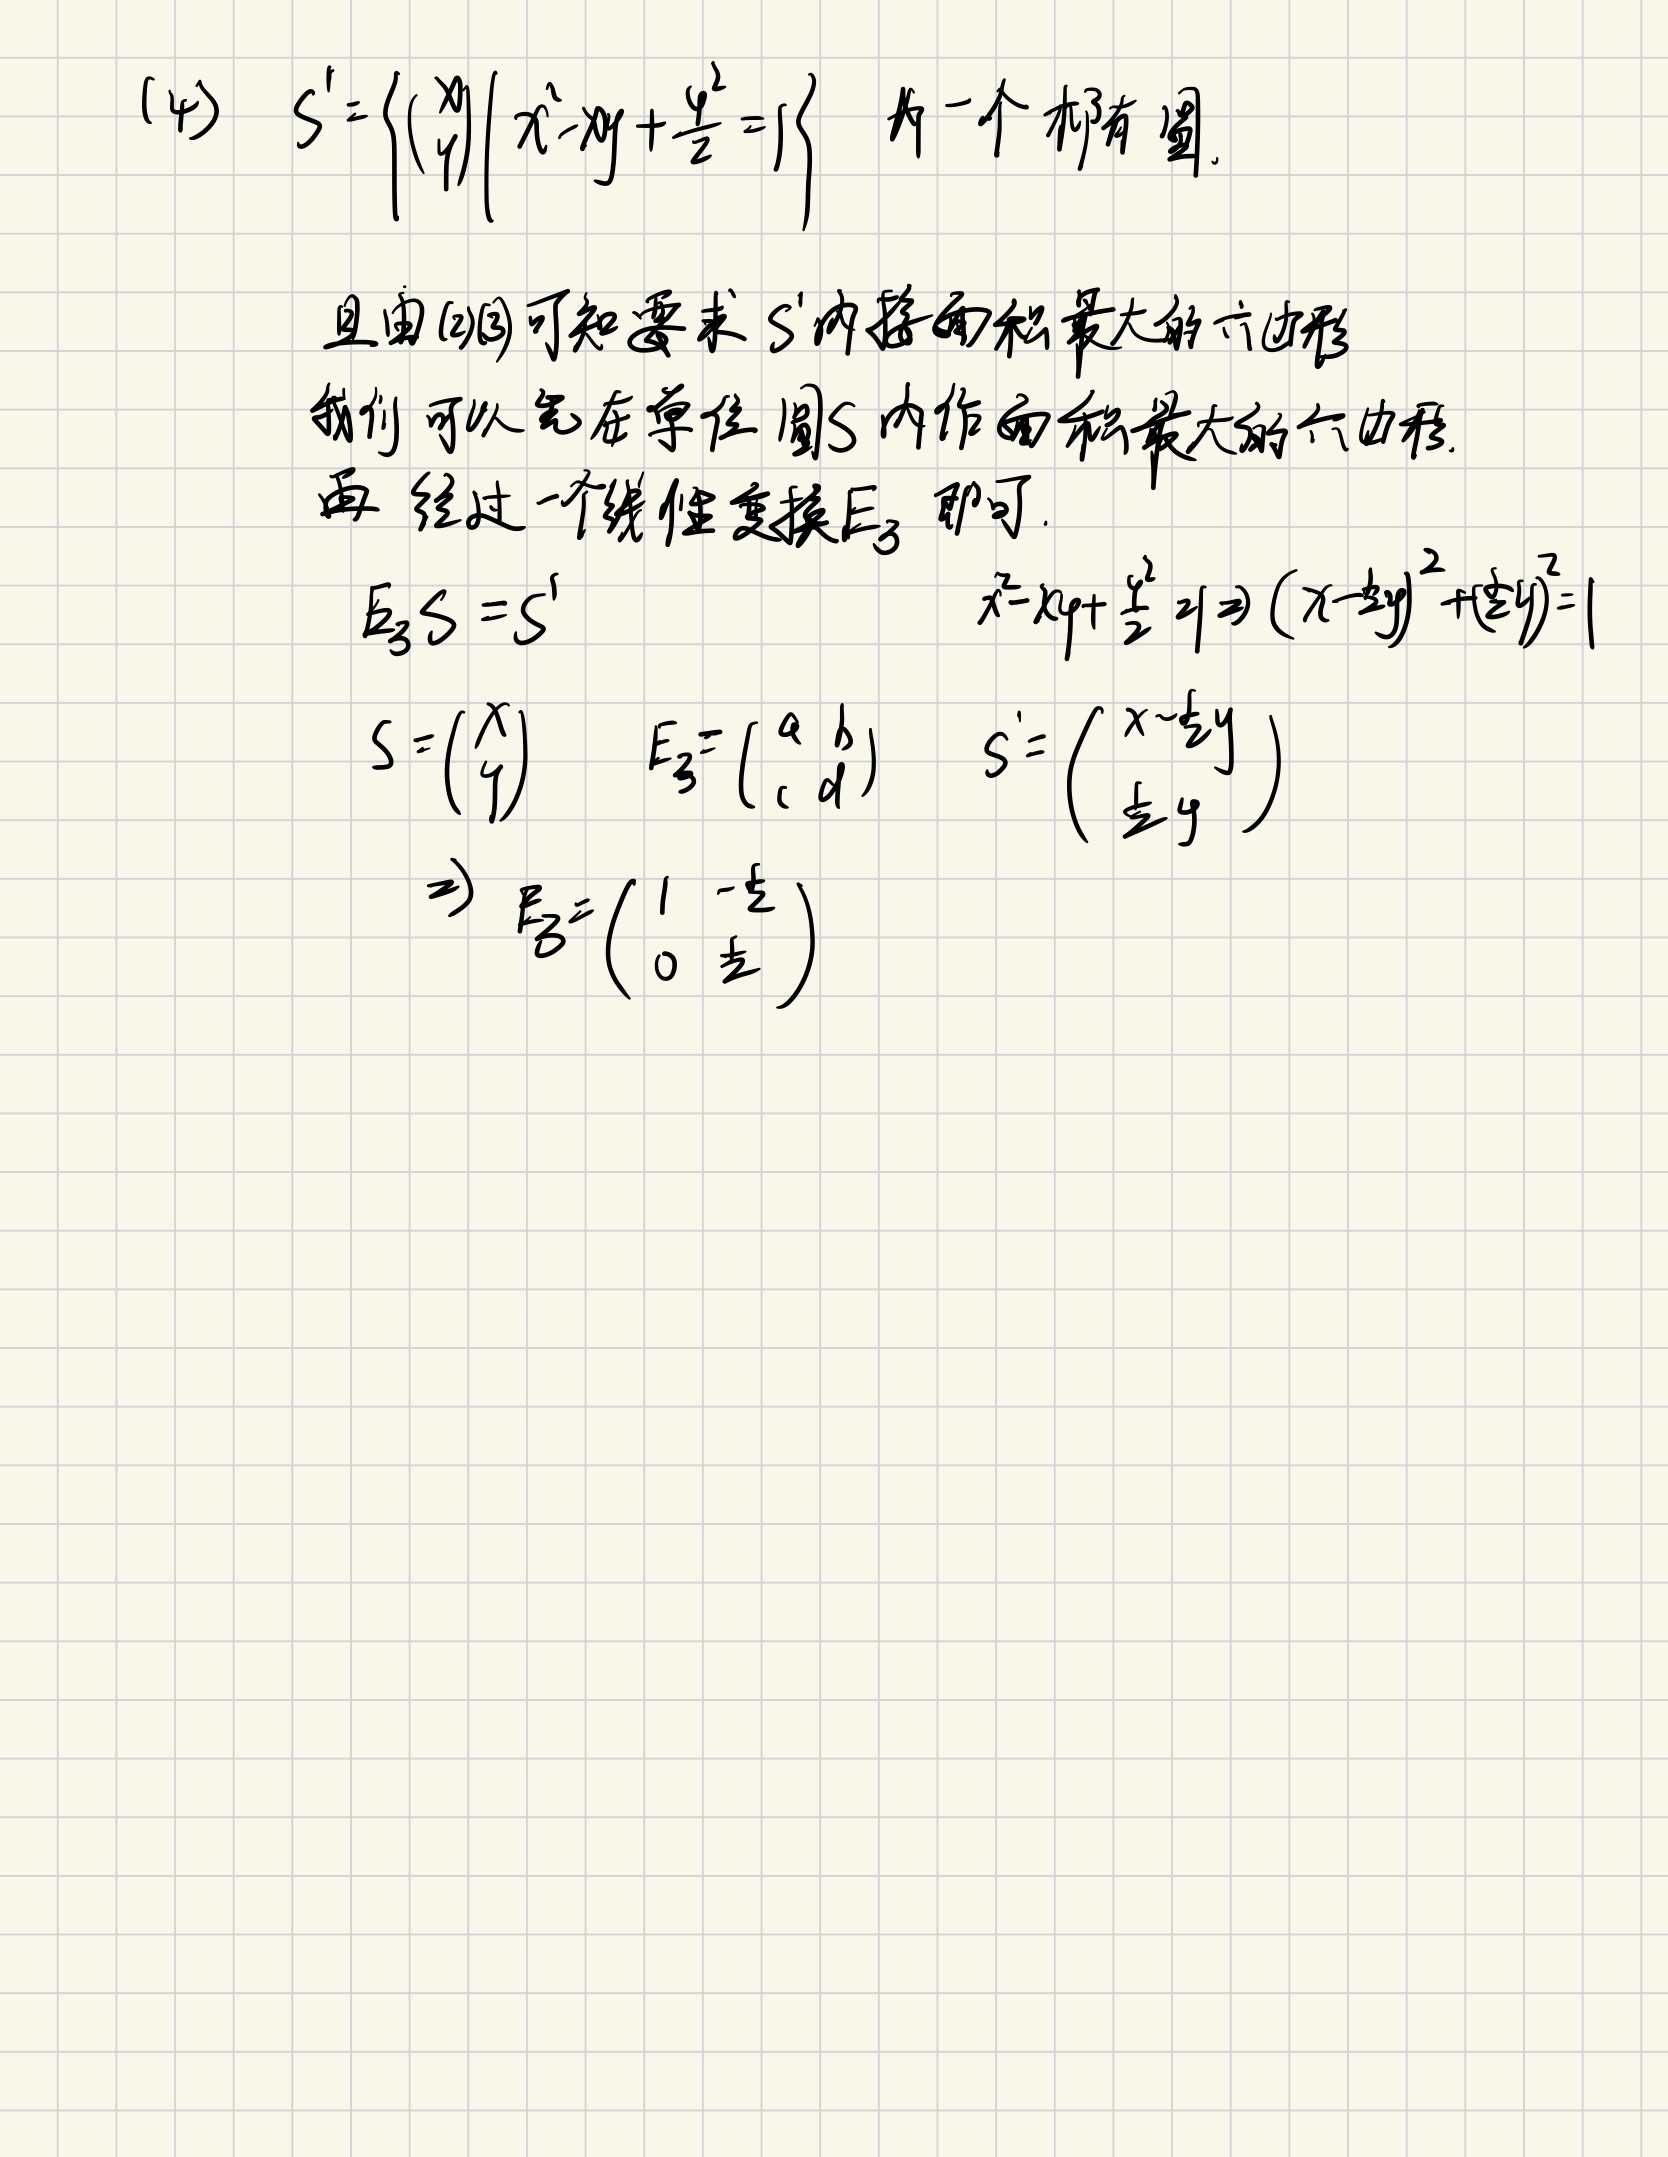 (4) S' = {(x y) | x² - xy + y²/2 = 1} 为一个椭圆.
且由(2)(3)可知要求 S'内接面积最大的六边形
我们可以先在单位圆S内作面积最大的六边形.
再经过一个线性变换E₃即可.
E₃S = S' x² - xy + y²/2 = 1 ⇒ (x - ½y)² + (½y)² = 1
S = (x y) E₃ = (a b c d) S' = (x - ½y ½y)
⇒ E₃ = (1 -½ 0 ½)